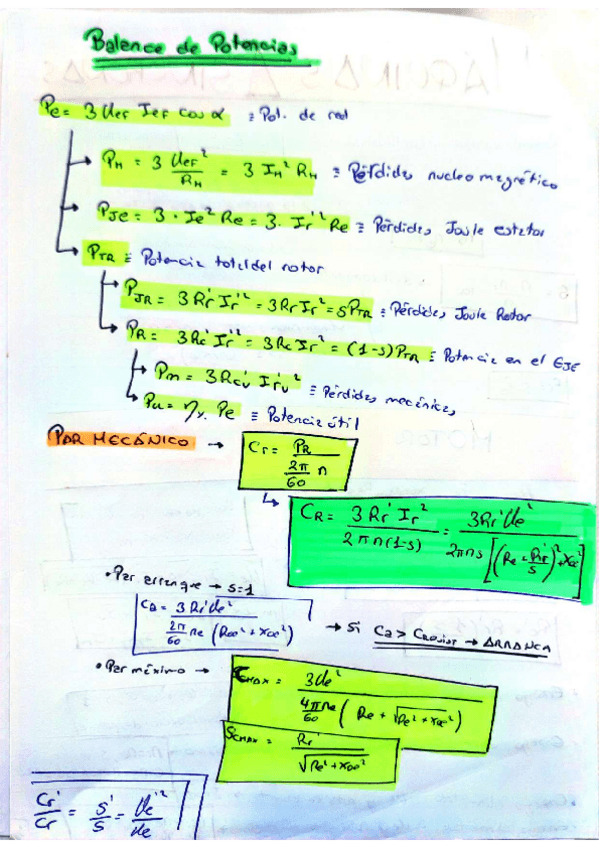 Balance de Potencias
Pe = 3 Uef Ief cos α ≡ Pot. de red
PH = 3 Uef² / RH = 3 IH² RH ≡ Pérdidas nucleo magnético
PJe = 3 · Ie² Re = 3 · Ir'² Re ≡ Pérdidas Joule estator
PTR ≡ Potencia total del rotor
PJR = 3 Rr' Ir'² = 3 Rr Ir² = s PTR ≡ Pérdidas Joule Rotor
PR = 3 Rc' Ir'² = 3 Rc Ir² = (1-s) PTR ≡ Potencia en el EJE
Pm = 3 Rcv' Irv'² ≡ Pérdidas mecánicas
Pu = ηv. Pe ≡ Potencia útil
PAR MECÁNICO → Cr = PR / (2π/60 n)
CR = 3 Rr' Ir² / 2πn(1-s) = 3 Rr' Ue² / 2πns [(Re + Rr'/s)² + Xcc²]
• Par arranque → s=1
Ca = 3 Rr' Ue² / (2π/60 ne (Rcc² + Xcc²)) → Si Ca > → ARRANCA
• Par máximo → CMAX = 3 Ue² / (4π ne/60 (Re + √Re² + Xcc²))
SCMAX = Rr' / √Re² + Xcc²
Cr'/Cr = s'/s = Ue'²/Ue